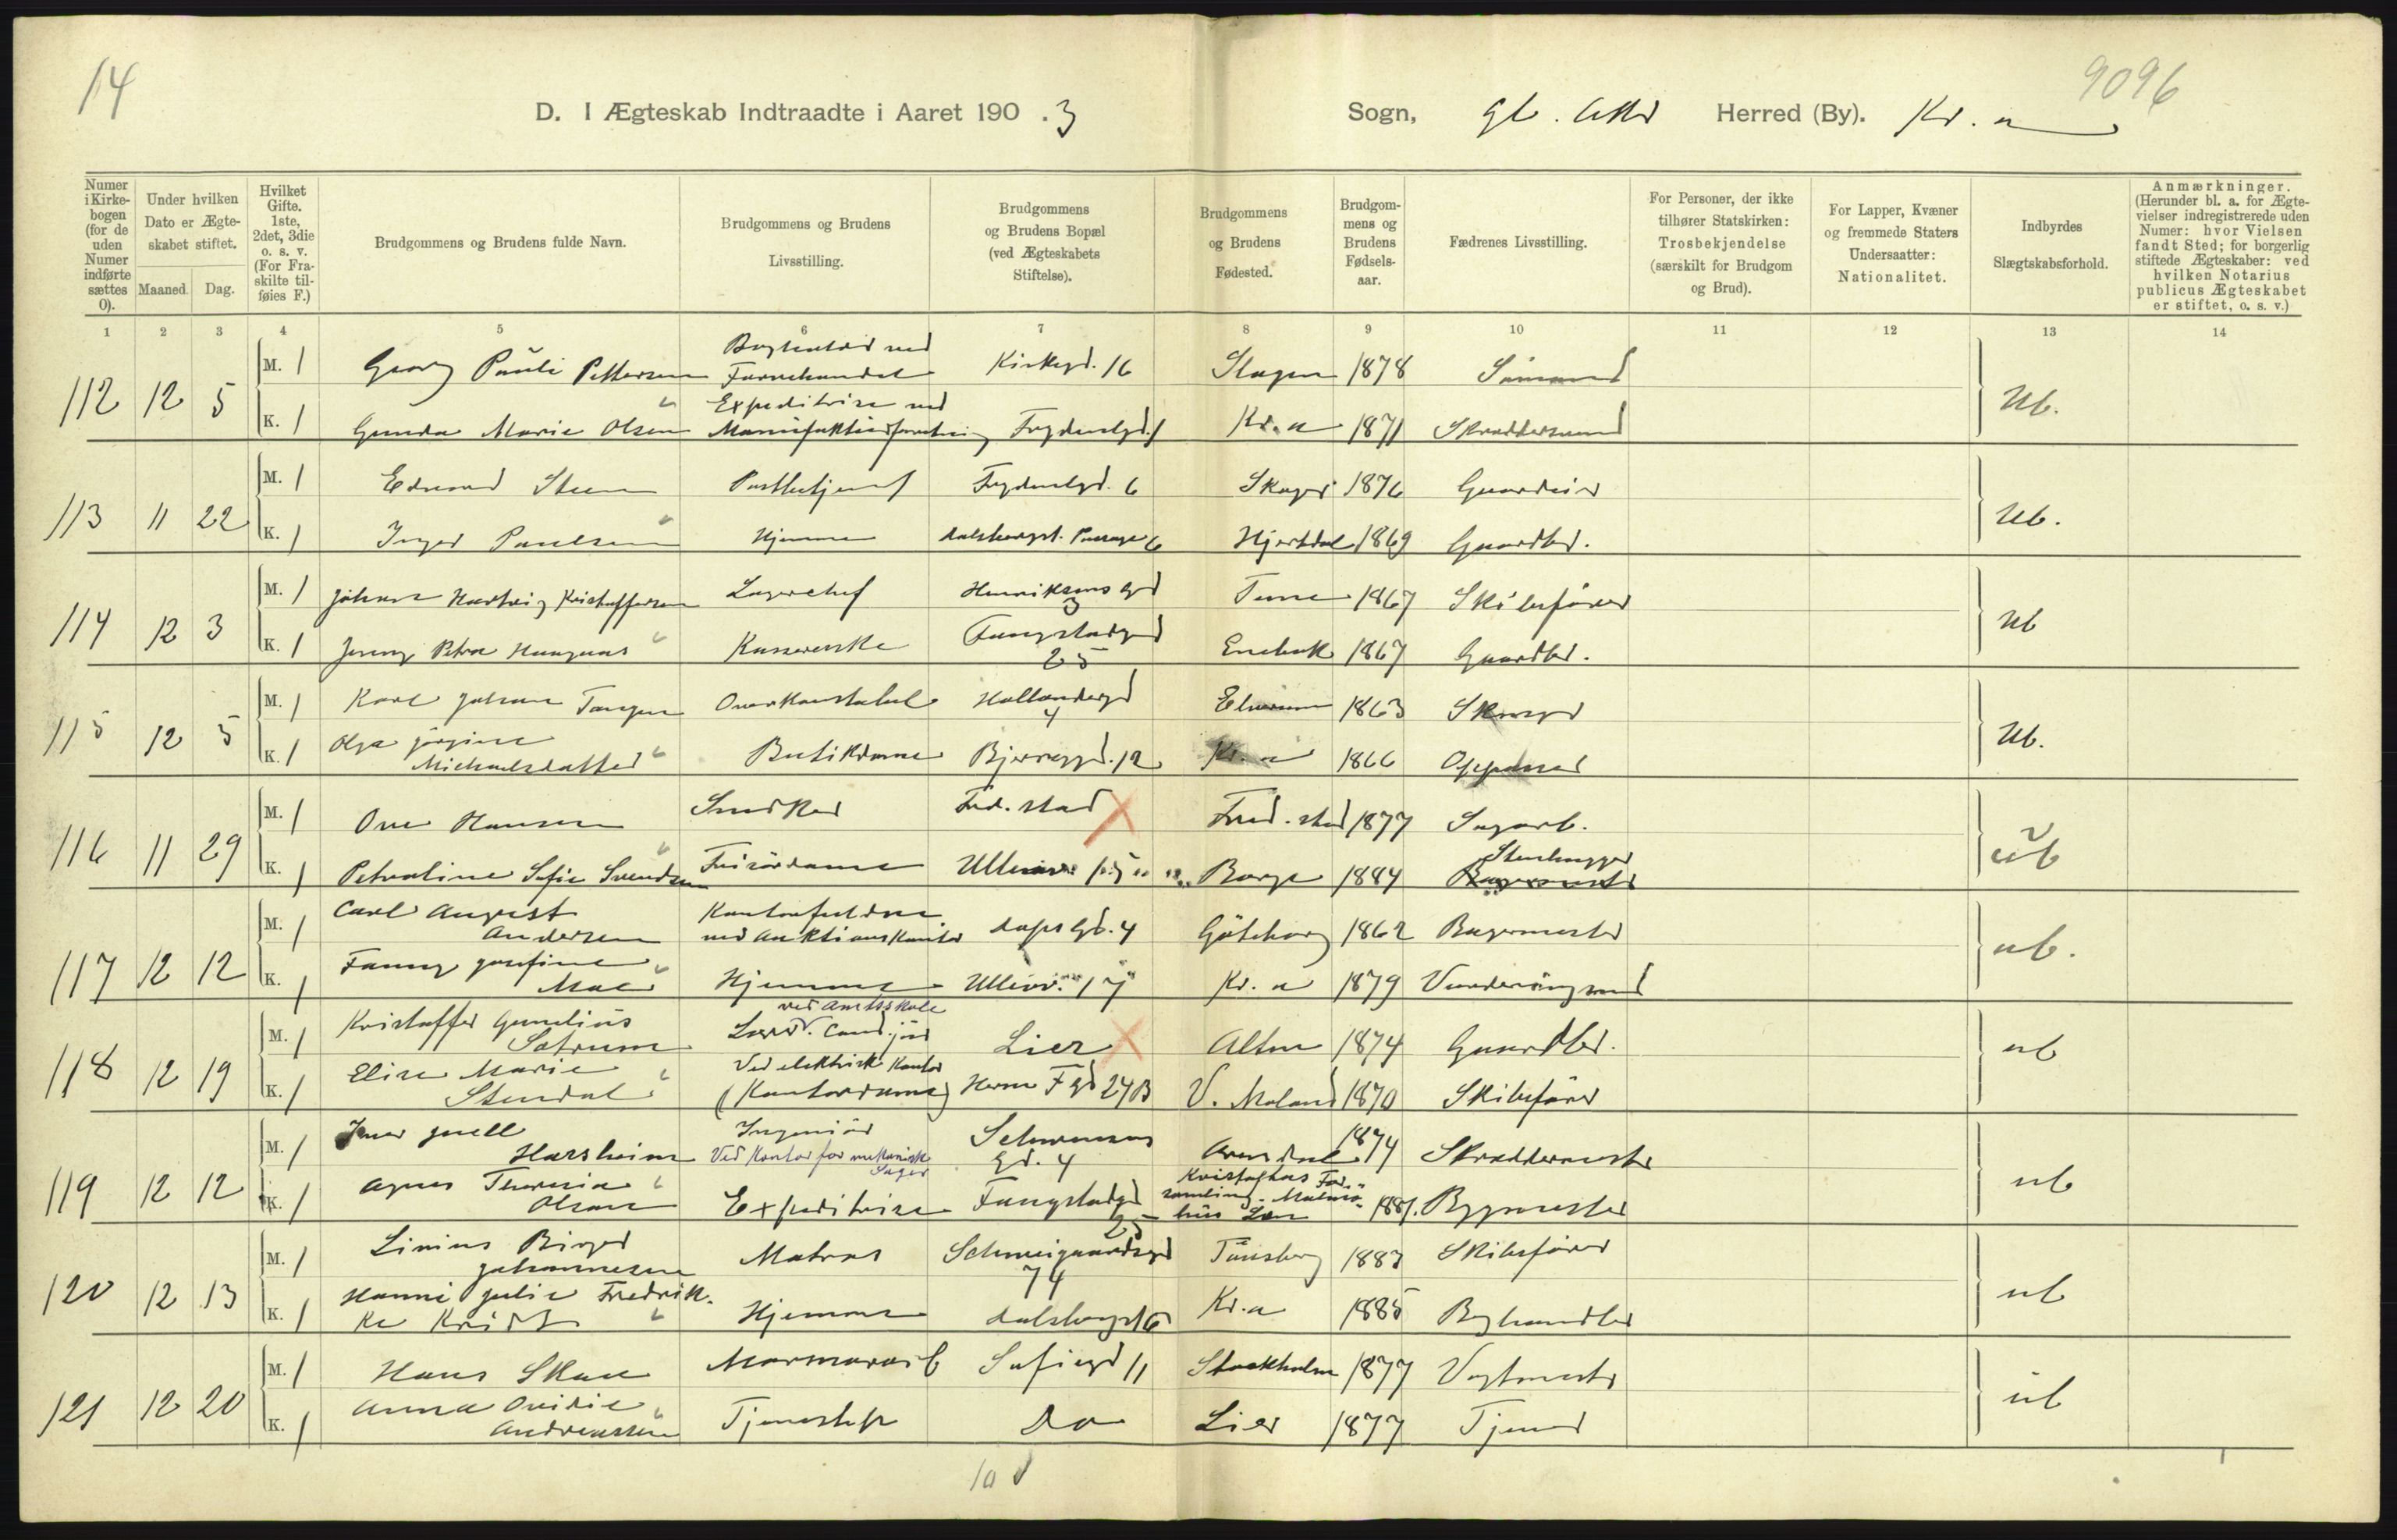 14
9096
D. I Ægteskab Indtraadte i Aaret 190 . 3
Sogn, Gl. Aker Herred (By). Kr.a
Numer i Kirke-bogen (for de uden Numer indførte sættes 0).
Under hvilken Dato er Ægte-skabet stiftet.
Maaned. Dag.
Hvilket Gifte. 1ste, 2det, 3die o. s. v. (For Fra-skilte til-føies F.)
Brudgommens og Brudens fulde Navn.
Brudgommens og Brudens Livsstilling.
Brudgommens og Brudens Bopæl (ved Ægteskabets Stiftelse).
Brudgommens og Brudens Fødested.
Brudgom-mens og Brudens Fødsels-aar.
Fædrenes Livsstilling.
For Personer, der ikke tilhører Statskirken: Trosbekjendelse (særskilt for Brudgom og Brud).
For Lapper, Kvæner og fremmede Staters Undersaatter: Nationalitet.
Indbyrdes Slægtskabsforhold.
Anmærkninger. (Herunder bl. a. for Ægte-vielser indregistrerede uden Numer: hvor Vielsen fandt Sted; for borgerlig stiftede Ægteskaber: ved hvilken Notarius publicus Ægteskabet er stiftet, o. s. v.)
1 2 3 4 5 6 7 8 9 10 11 12 13 14
112 12 5
M. 1 Georg Pauli Pettersen Bogholder ved Farvehandel Kirkegd. 16 Skagen 1878 Sømand
K. 1 Gunda Marie Olsen Expeditrice ved Manufakturforretning Fagdenlgd. 1 Kr.a 1871 Skræddersvend
Ub.
113 11 22
M. 1 Edvard Steen Postbetjent 6 Skager 1876 Gaardeier
K. 1 Inger Paulsen Hjemme Dalsbergst. Passage 6 Hjertdal 1869 Gaardbr.
Ub.
114 12 3
M. 1 Johan Hartvig Kristoffersen Lagerchef Henriksens Gd 3 Tune 1867 Skibsfører
K. 1 Jenny Petra Haugnæs Kassererske Fougstadgd 25 Enebak 1867 Gaardbr.
Ub
115 12 5
M. 1 Karl Johan Tangen Overkonstabel Hollendergd 4 Elverum 1863 Skrægd
K. 1 Olga Jørgine Michaelsdatter Butikdame Bjerregd. 12 Kr.a 1866 Oppasser
Ub.
116 11 29
M. 1 Ove Hansen Snedker Fred.stad Fred.stad 1877 Sagarb.
K. 1 Petraline Sofie Svendsen Frisørdame Ullev. Borge 1884 Stenhugger
Ub
117 12 12
M. 1 Carl August Andersen Kontorfuldm. ved Auktionskontor Daps Gd. 4 Gøteborg 1862 Bagermester
K. 1 Fanny Josefine Moe Hjemme Ullevv. 17 Kr.a 1879 Vurderingsmand
ub.
118 12 19
M. 1 Kristoffer Gundius Sotrum Lærer ved Amtsskole Cand. jur Lier Alten 1874 Gaardbr.
K. 1 Elise Marie Stendal Ved elektrisk Kontor (Kontordame) Herm F Gd 27B V. Moland 1870 Skibsfører
ub
119 12 12
M. 1 Juell Harsheim Ingeniør Ved Kontor for mekaniske Sager Schwensens Gd. 4 Arendal 1874 Skræddermester
K. 1 Agnes Theresia Olsson Expeditrice Fougstadgd 25 Kristofters Forsamling. Malmøhus Len 1881. Bygmester
ub
120 12 13
M. 1 Linius Birger Johannesen Matros Schweigaardsgd 74 Tønsberg 1883 Skibsfører
K. 1 Hanna Julie Fredrikke Hjemme Dalsbergst 6 Kr.a 1885 Boghandler
ub
121 12 20
M. 1 Hans Skau Marmorarb Sofiegd 11 Stockholm 1877 Vogtmester
K. 1 Anna Ovidie Andreassen Tjenestep Do Lier 1877 Tjener
ub
10